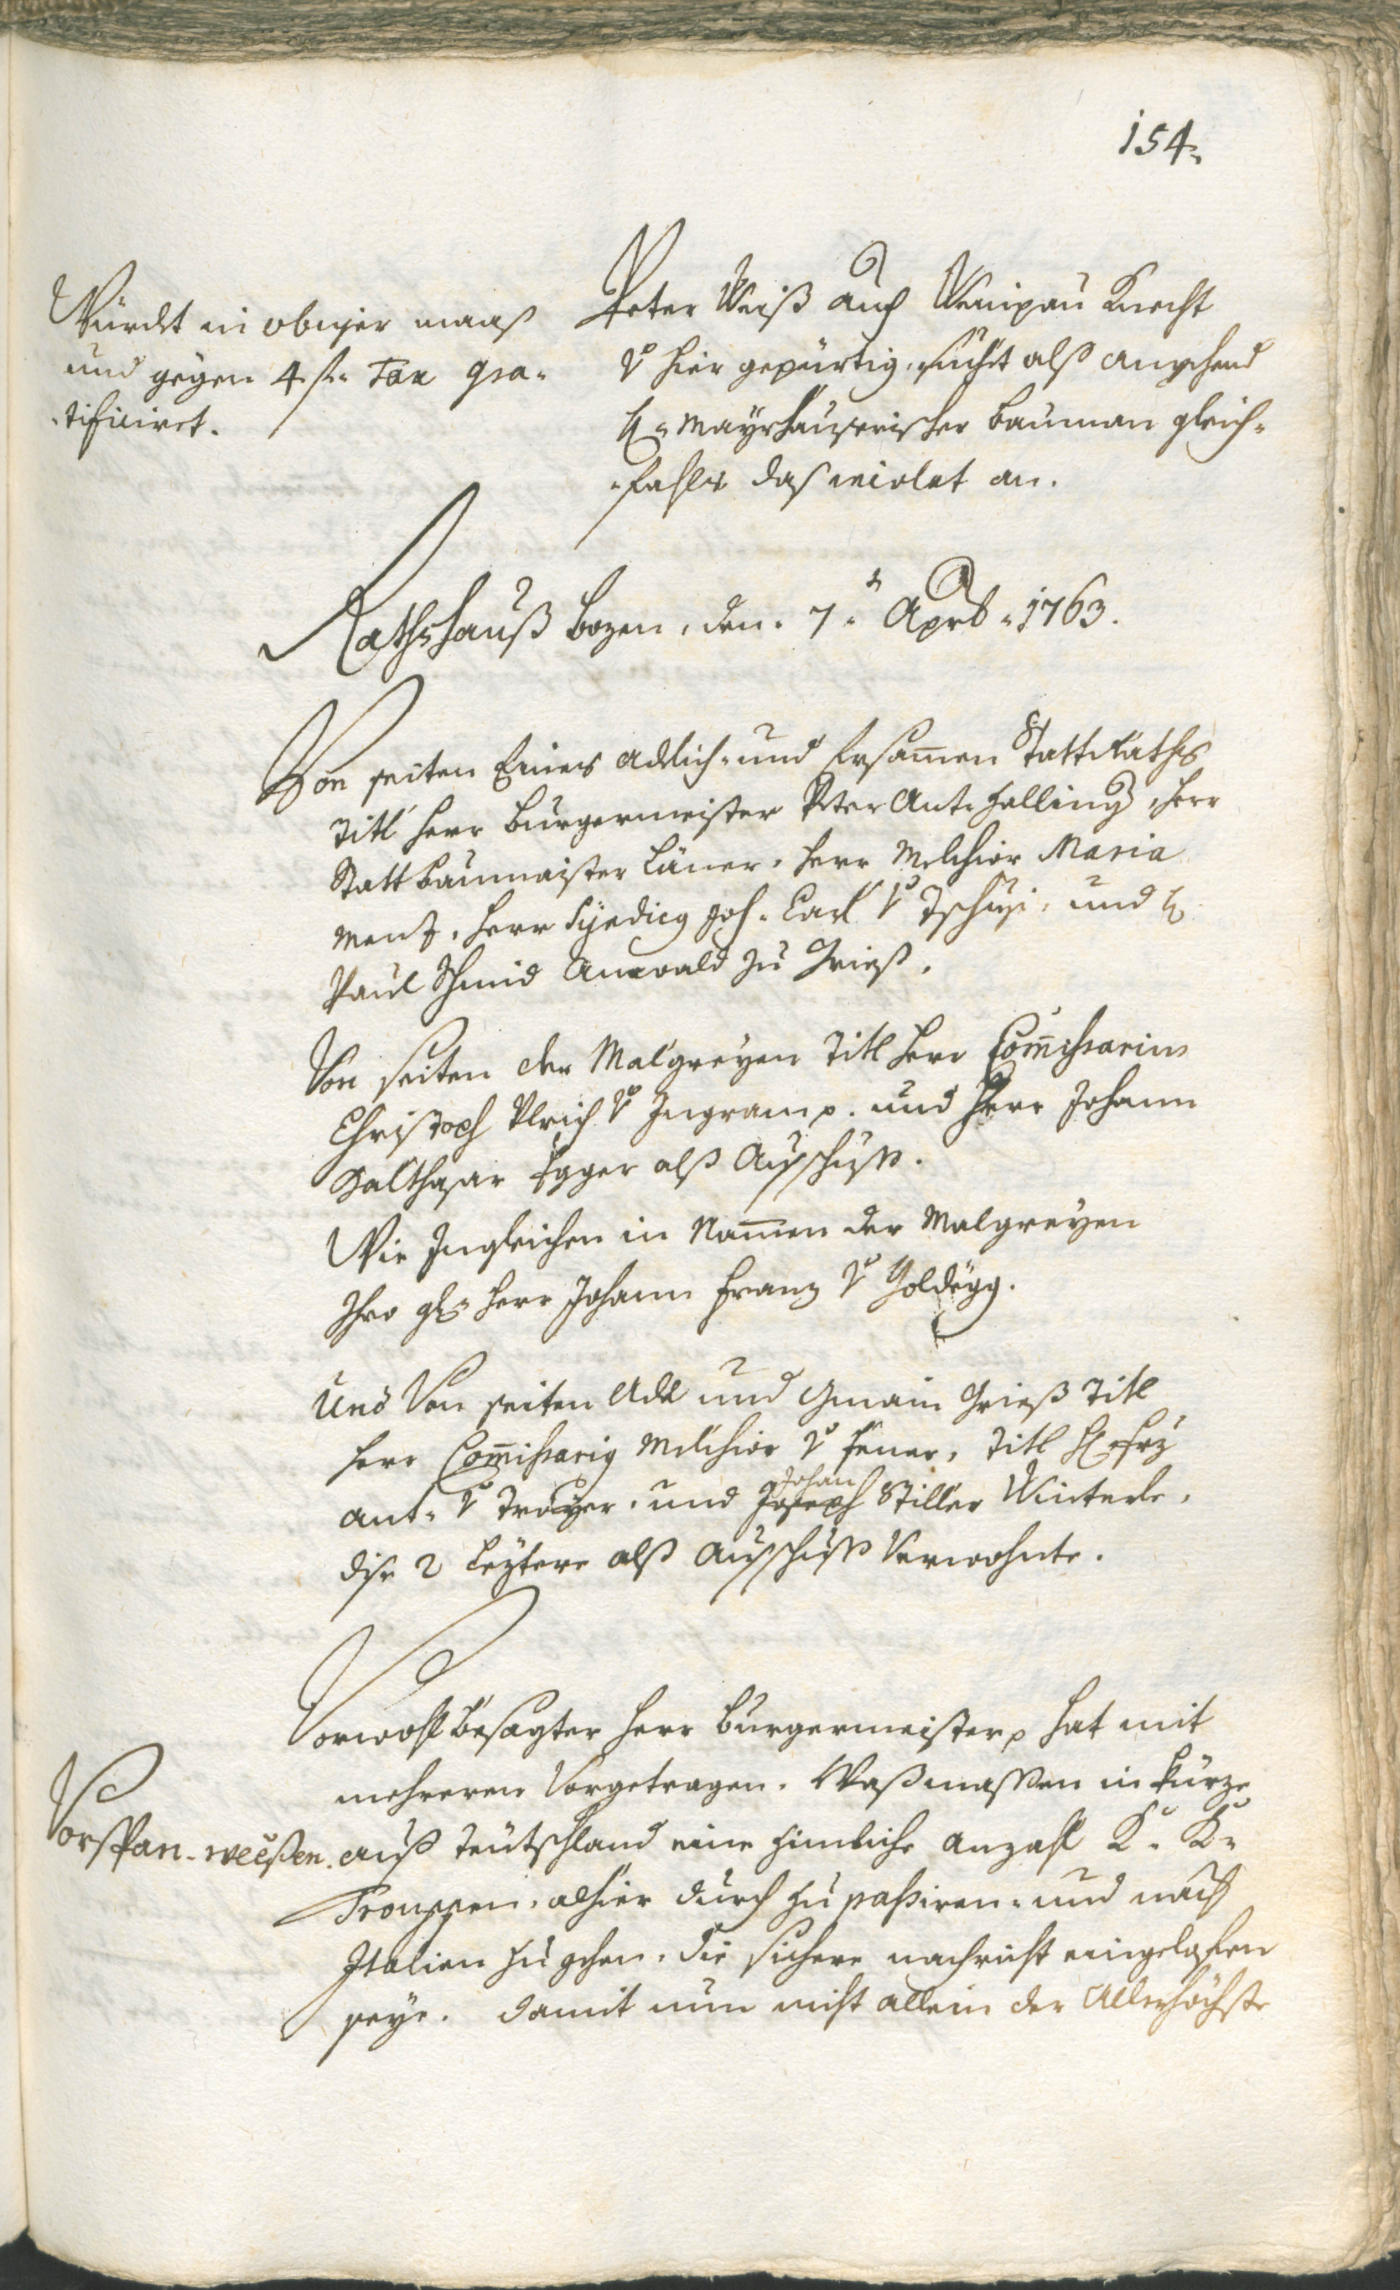 154.
Würdt in obiger maaß
und gegen 4 f. Tax gra-
-tificiret.
Peter Weiß auch Weinpau Knecht
v hier gepürtig, suecht alß angehend
H. Mayrhauserischer Bauman gleich-
-fahls das incolat an.
Rathshauß Bozen, den 7. Aprl. 1763.
Von seiten Eines adelich- und Ersamen Statt Raths
Titl Herr Burgermeister Peter Ant. Halling, Herr
Statt Baumaister Laner, Herr Melchior Maria
Menz, Herr Syndicus Jos. Carl v Tschusi, und H
Paul Schmid Anwald zu Grieß.
Von seiten der Malgreyen Titl Herr Commissarius
Christoph Ulrich v Ingram p. und Herr Johann
Balthasar Egger alß Ausschuss.
Wie Ingleichen in Namen der Malgreyen
Ihro gl. Herr Johann Franz v Goldegg.
Und Von seiten Adl und Gmain Grieß Titl
Herr Commissarius Melchior v Hener, Titl H Frz
Ant. v Troyer, und Joseph Johan Stiller Winterle,
dise 2 leztere alß Ausschuss Verwohnte.
Vorwohlbesagter Herr Burgermeister p hat mit
mehreren Vorgetragen, Waßmassen in kürze
Vorspan-weeßen.
auß Teutschland eine zimliche Anzahl K. K.
Trouppen, alhier durch zu passiren, und nach
Italien zu gehen, die sichere nachricht eingelofen
seye. Damit nun nicht allein der Allerhöchste